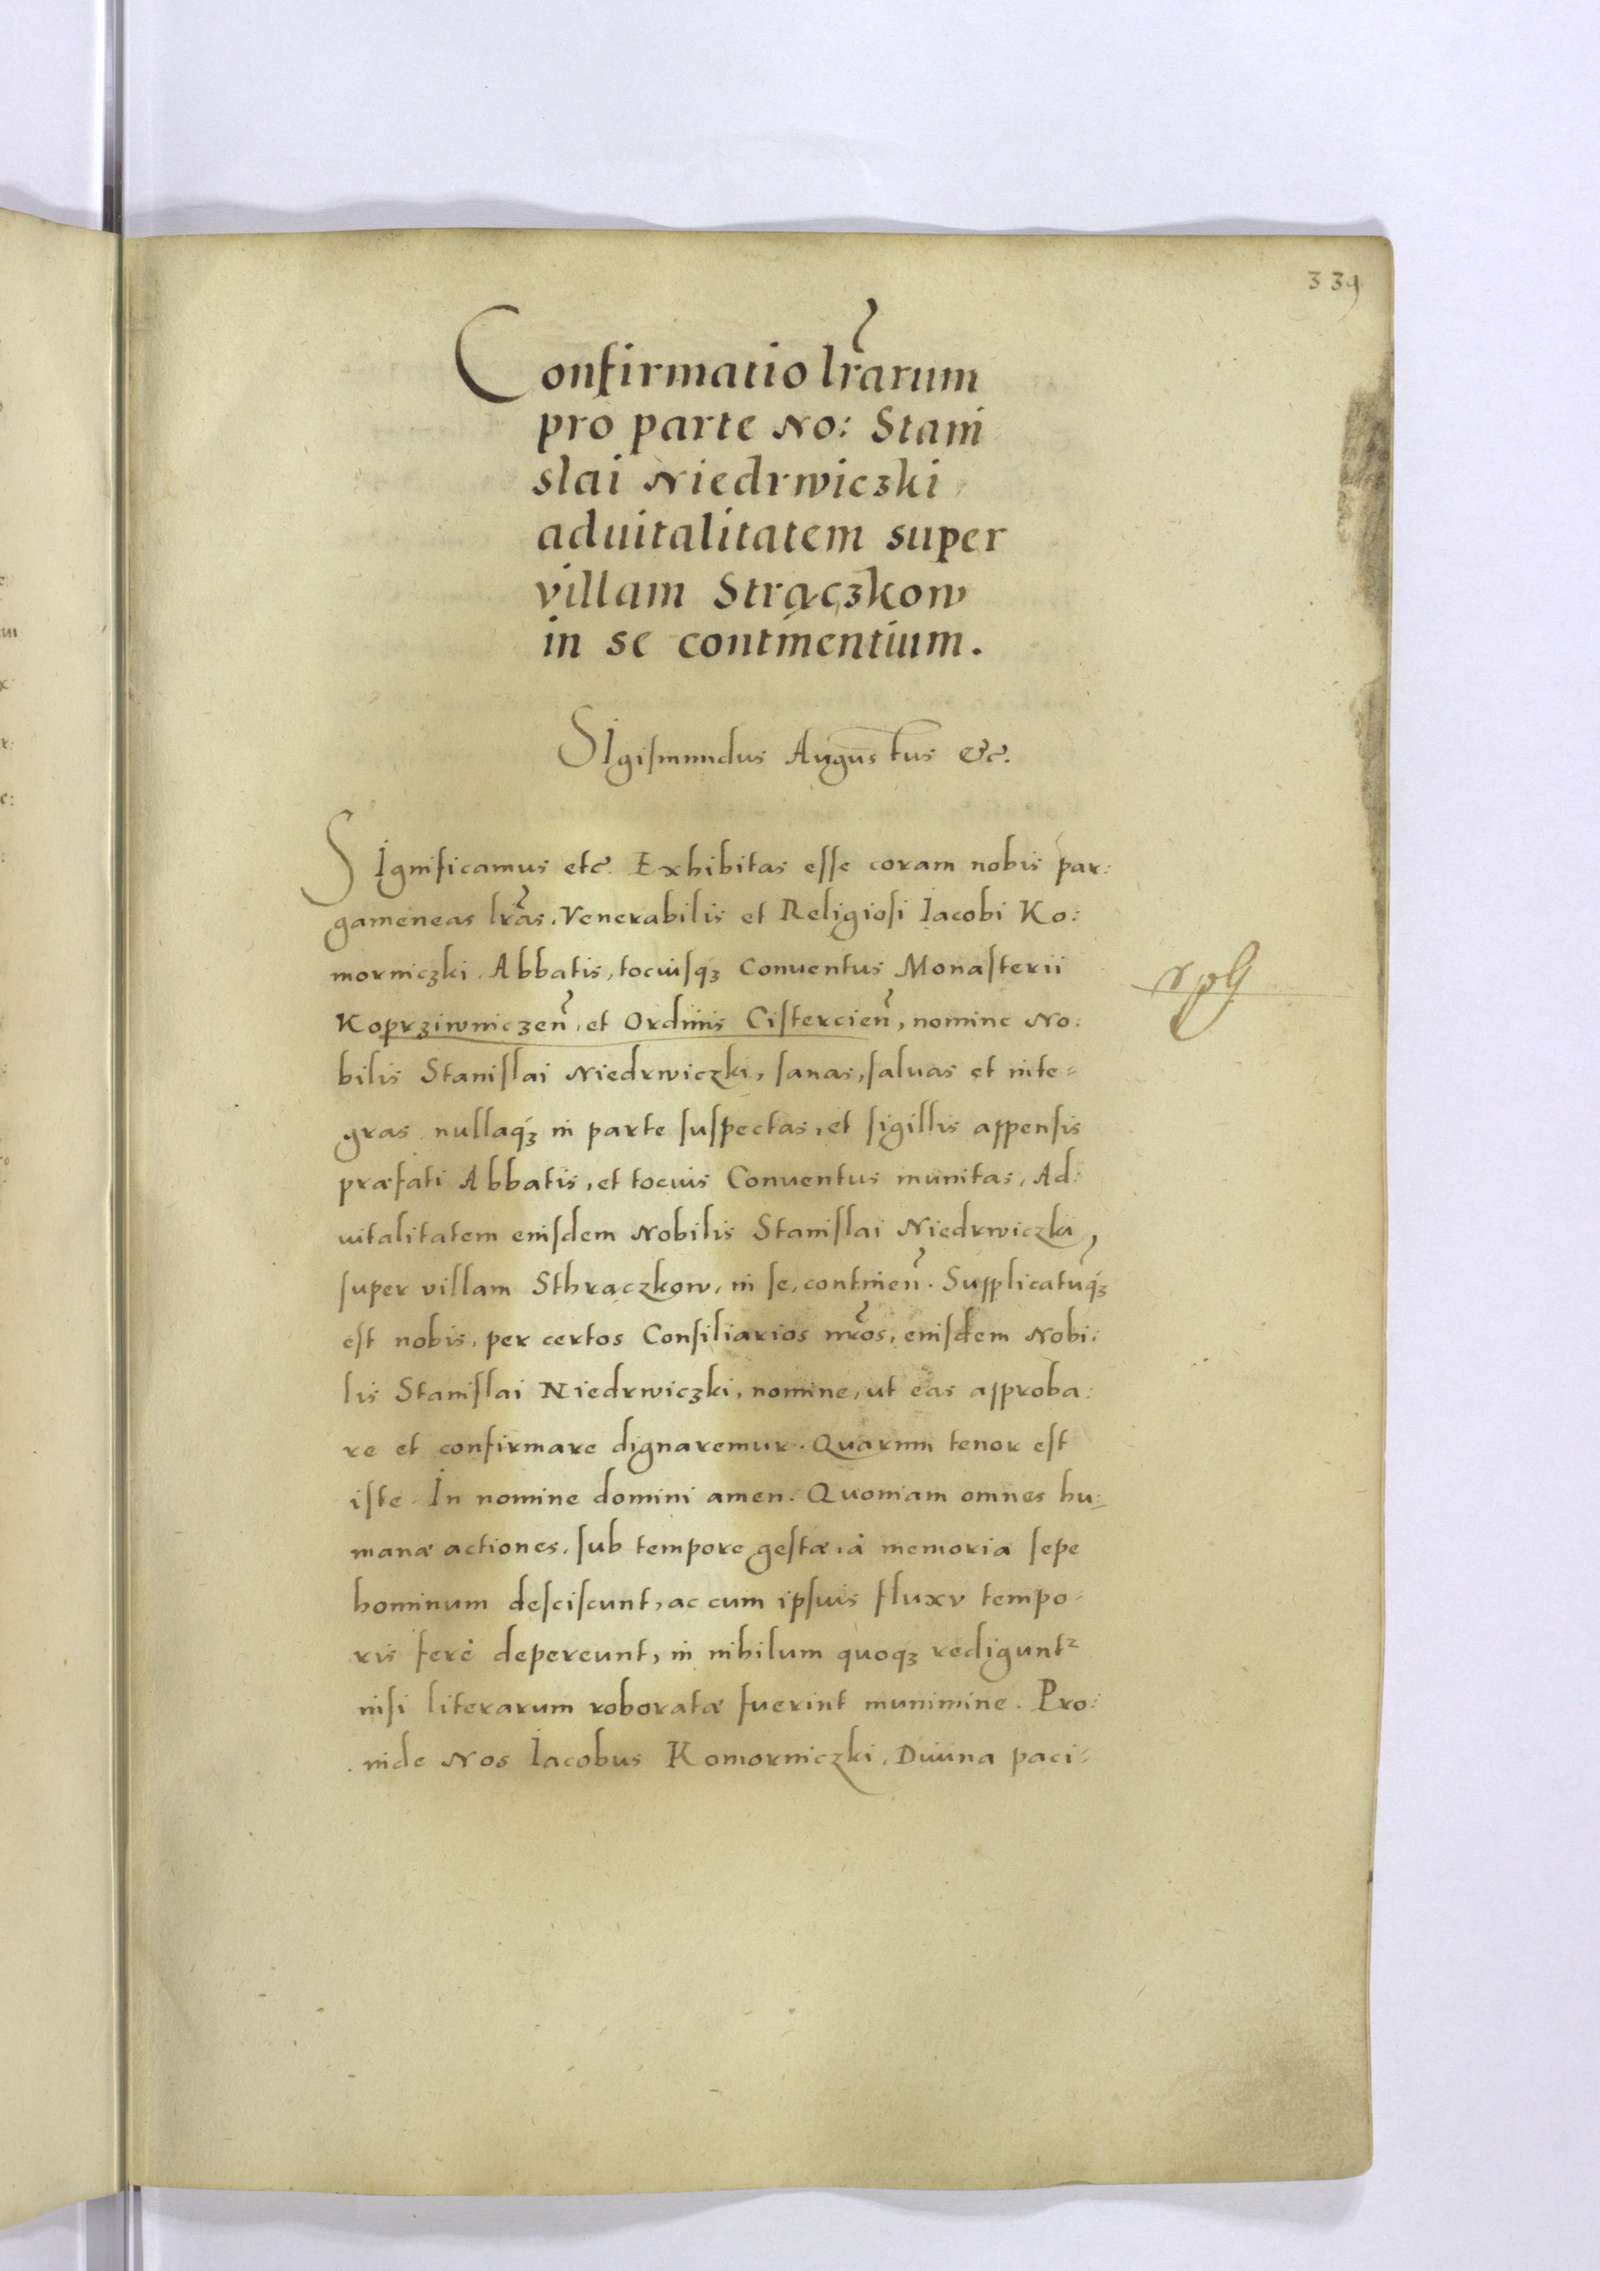 339
Confirmatio lrarum
pro parte No: Stani
slai Niedrwiczki
aduitalitatem super
villam Strączkow
in se continentium.
SIgismundus Augustus &c.
SIgnificamus etc. Exhibitas esse coram nobis par:
gameneas lras. Venerabilis et Religiosi Iacobi Ko:
morniczki. Abbatis, tociusqȝ Conuentus Monasterii
Koprziwniczen, et Ordinis Cistercien, nomine No:
bilis Stanislai Niedrwiczki, sanas, saluas et inte-
gras nullaqȝ in parte suspectas, et sigillis appensis
præfati Abbatis, et tocius Conuentus munitas, Ad:
uitalitatem eiusdem Nobilis Stanislai Niedrwiczki,
super villam Sthrączkow, in se, continen. Supplicatuqȝ
est nobis, per certos Consiliarios nros, eiusdem Nobi:
lis Stanislai Niedrwiczki, nomine, ut eas approba:
re et confirmare dignaremur. Quarum tenor est
iste. In nomine domini amen. Quoniam omnes hu:
manæ actiones, sub tempore gestæ, à memoria sepe
hominum desciscunt, ac cum ipsius fluxu tempo-
ris ferè depereunt, in nihilum quoqȝ rediguntr
nisi literarum roboratæ fuerint munimine. Pro:
inde Nos Iacobus Komorniczki, Diuina paci-